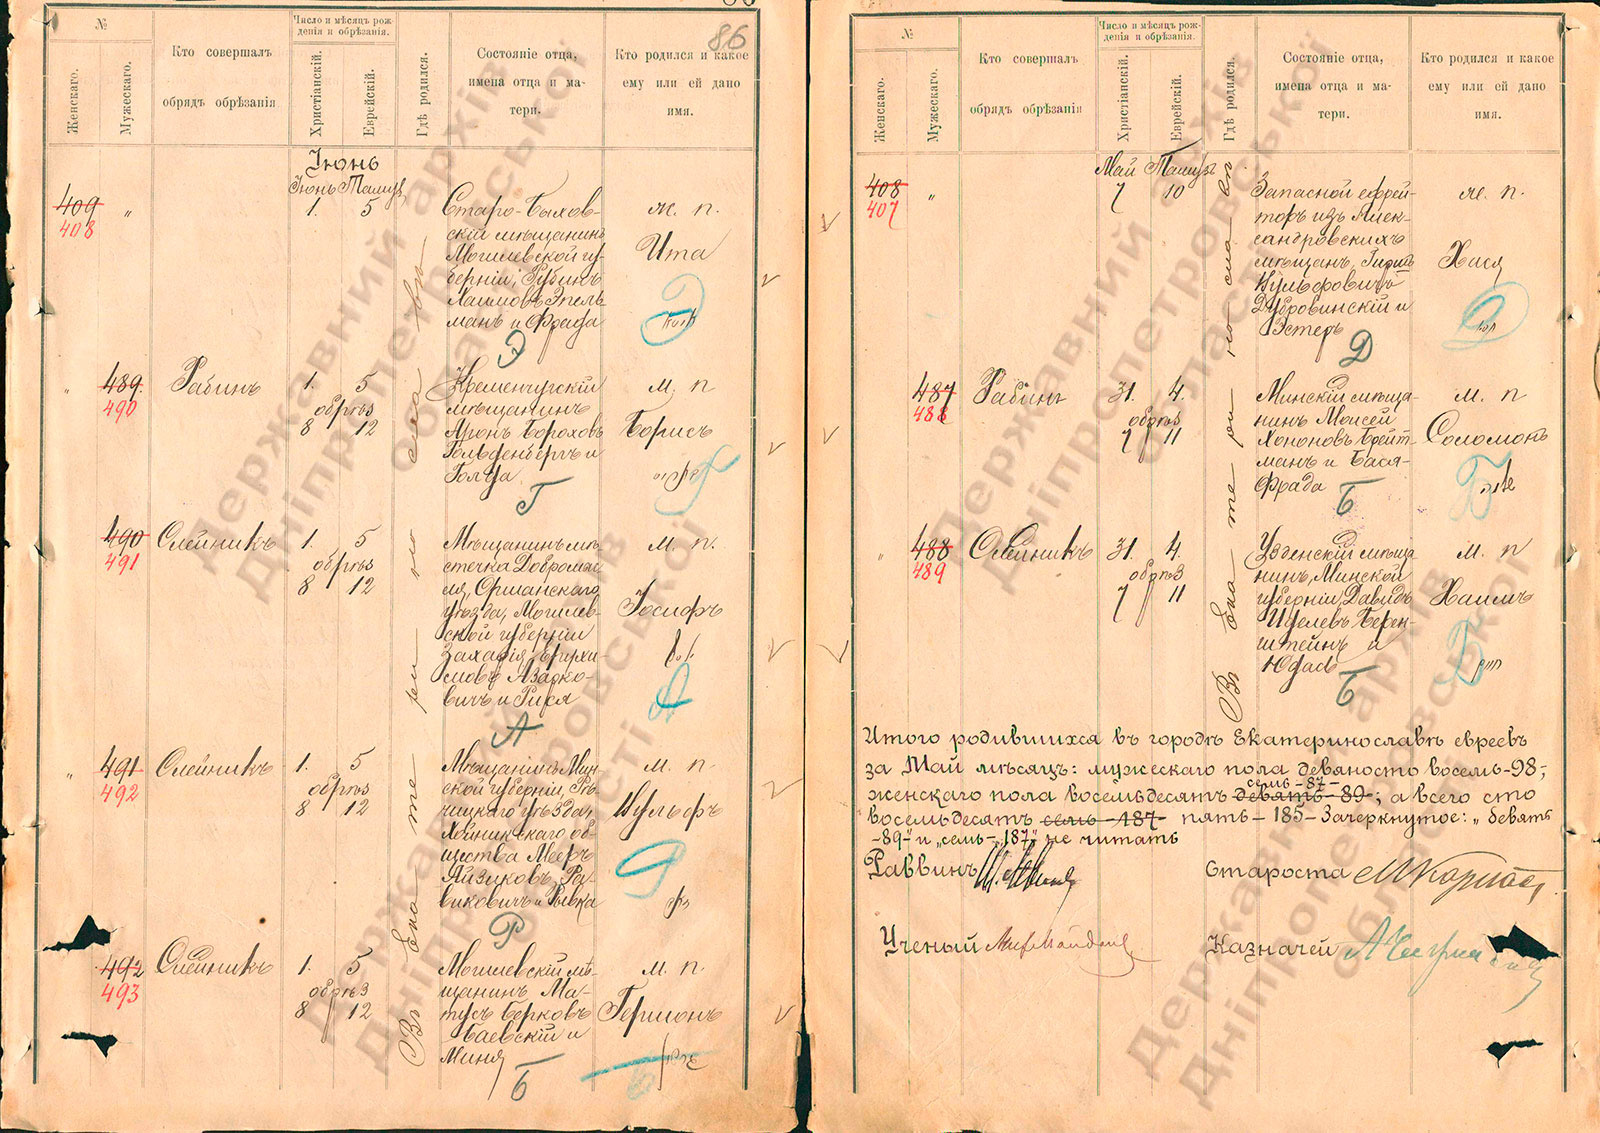 86
№
Женскаго.
Мужескаго.
Кто совершалъ
обрядъ обрѣзанія
Число и мѣсяцъ рож
денія и обрѣзанія.
Христіанскій.
Еврейскій.
Гдѣ родился.
Состояніе отца,
имена отца и ма-
тери.
Кто родился и какое
ему или ей дано
имя.
Іюнь
Іюнь Тамуз
409
408
"
1. 5
Старо-Быхов-
скій мѣщанинъ
Могилевской гу-
берніи, Рубинъ
Хаимовъ Эпель-
манъ и Фрада
Э
ж. п.
Ита
"
489.
490
Рабинъ
1. 5
обрѣз
8 12
Кременчугскій
мѣщанинъ
Аронъ Бороховъ
Гольденбергъ и
Голда
Г
м. п
Борисъ
490
491
Олейникъ
1. 5
обрѣз
8 12
Мѣщанинъ мѣ-
стечка Добромы-
ля, Оршанскаго
уѣзда, Могилев-
ской губерніи
Захарія
Азарко-
вичъ и Рися
А
м. п.
Іосифъ
"
491
492
Олейникъ
1. 5
обрѣз
8 12
Мѣщанинъ Мин-
ской губерніи, Рѣ-
чицкаго уѣзда,
Хойникскаго об-
щества Мееръ
Айзиковъ Ра-
виковичъ и Рывка
Р
м. п
Вульфъ
492
493
Олейникъ
1. 5
обрѣз
8 12
Могилевскій мѣ-
щанинъ Ма-
тусъ Берковъ
Баевскій и
Миня
Б
м. п.
Германъ
Въ Екатеринославѣ
№
Женскаго.
Мужескаго.
Кто совершалъ
обрядъ обрѣзанія
Число и мѣсяцъ рож-
денія и обрѣзанія.
Христіанскій.
Еврейскій.
Гдѣ родился.
Состояніе отца,
имена отца и ма-
тери.
Кто родился и какое
ему или ей дано
имя.
Май Тамузъ
408
407
"
7 10
Запасной ефрей-
торъ изъ Алек-
сандровскихъ
мѣщанъ, Гиршъ
Вульфовичъ
Дубровинскій и
Эстеръ
Д
ж. п.
Хася
487
488
Рабинъ
31. 4.
обрѣз
7 11
Минскій мѣща-
нинъ Моисей
Хононовъ Брейт-
манъ и Бася-
Фрада
Б
м. п
Соломонъ
"
488
489
Олейникъ
31. 4.
обрѣз
7 11
Узденскій мѣща
нинъ, Минской
губерніи, Давидъ
Ицелевъ Берен-
штейнъ и
Юдасъ
Б
м. п
Хаимъ
Въ Екатеринославѣ
Итого родившихся въ городѣ Екатеринославѣ евреевъ
за Май мѣсяцъ: мужескаго пола девяносто восемь-98-,
семь-87-
женскаго пола восемьдесятъ девять-89-; а всего сто
восемьдесятъ семь-187- пять-185- Зачеркнутое: "девять
-89-" и "семь-187" не читать
Раввинъ
Староста
Ученый
Казначей
Державний архів
Дніпропетровської
області